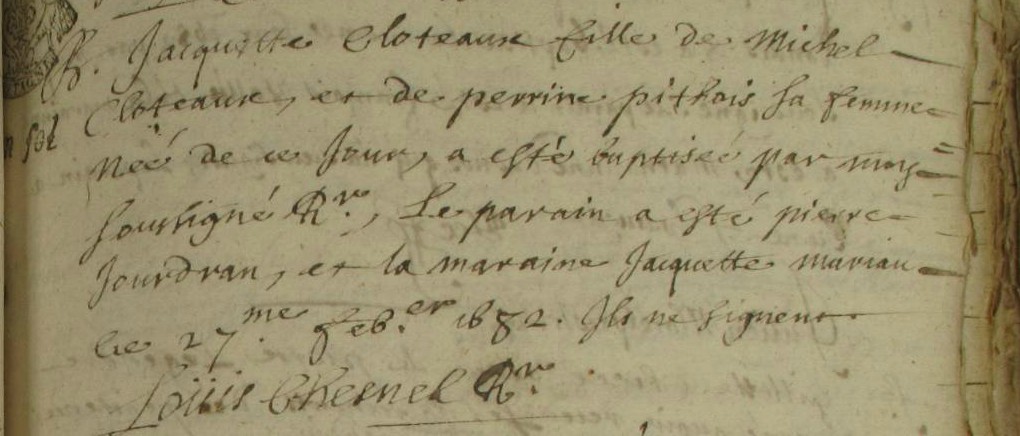 B. Jacquette Cloteaux fille de Michel
Cloteaux, et de perrine pithois sa femme
n sol
Neé de ce Jour, a esté baptiseé par moy
soussigné Rr., Le parain a esté pierre
Jourdran, et la maraine Jacquette mariau
le 27.me feb.er 1682. Ils ne signent
Loüis Chesnel Rr.